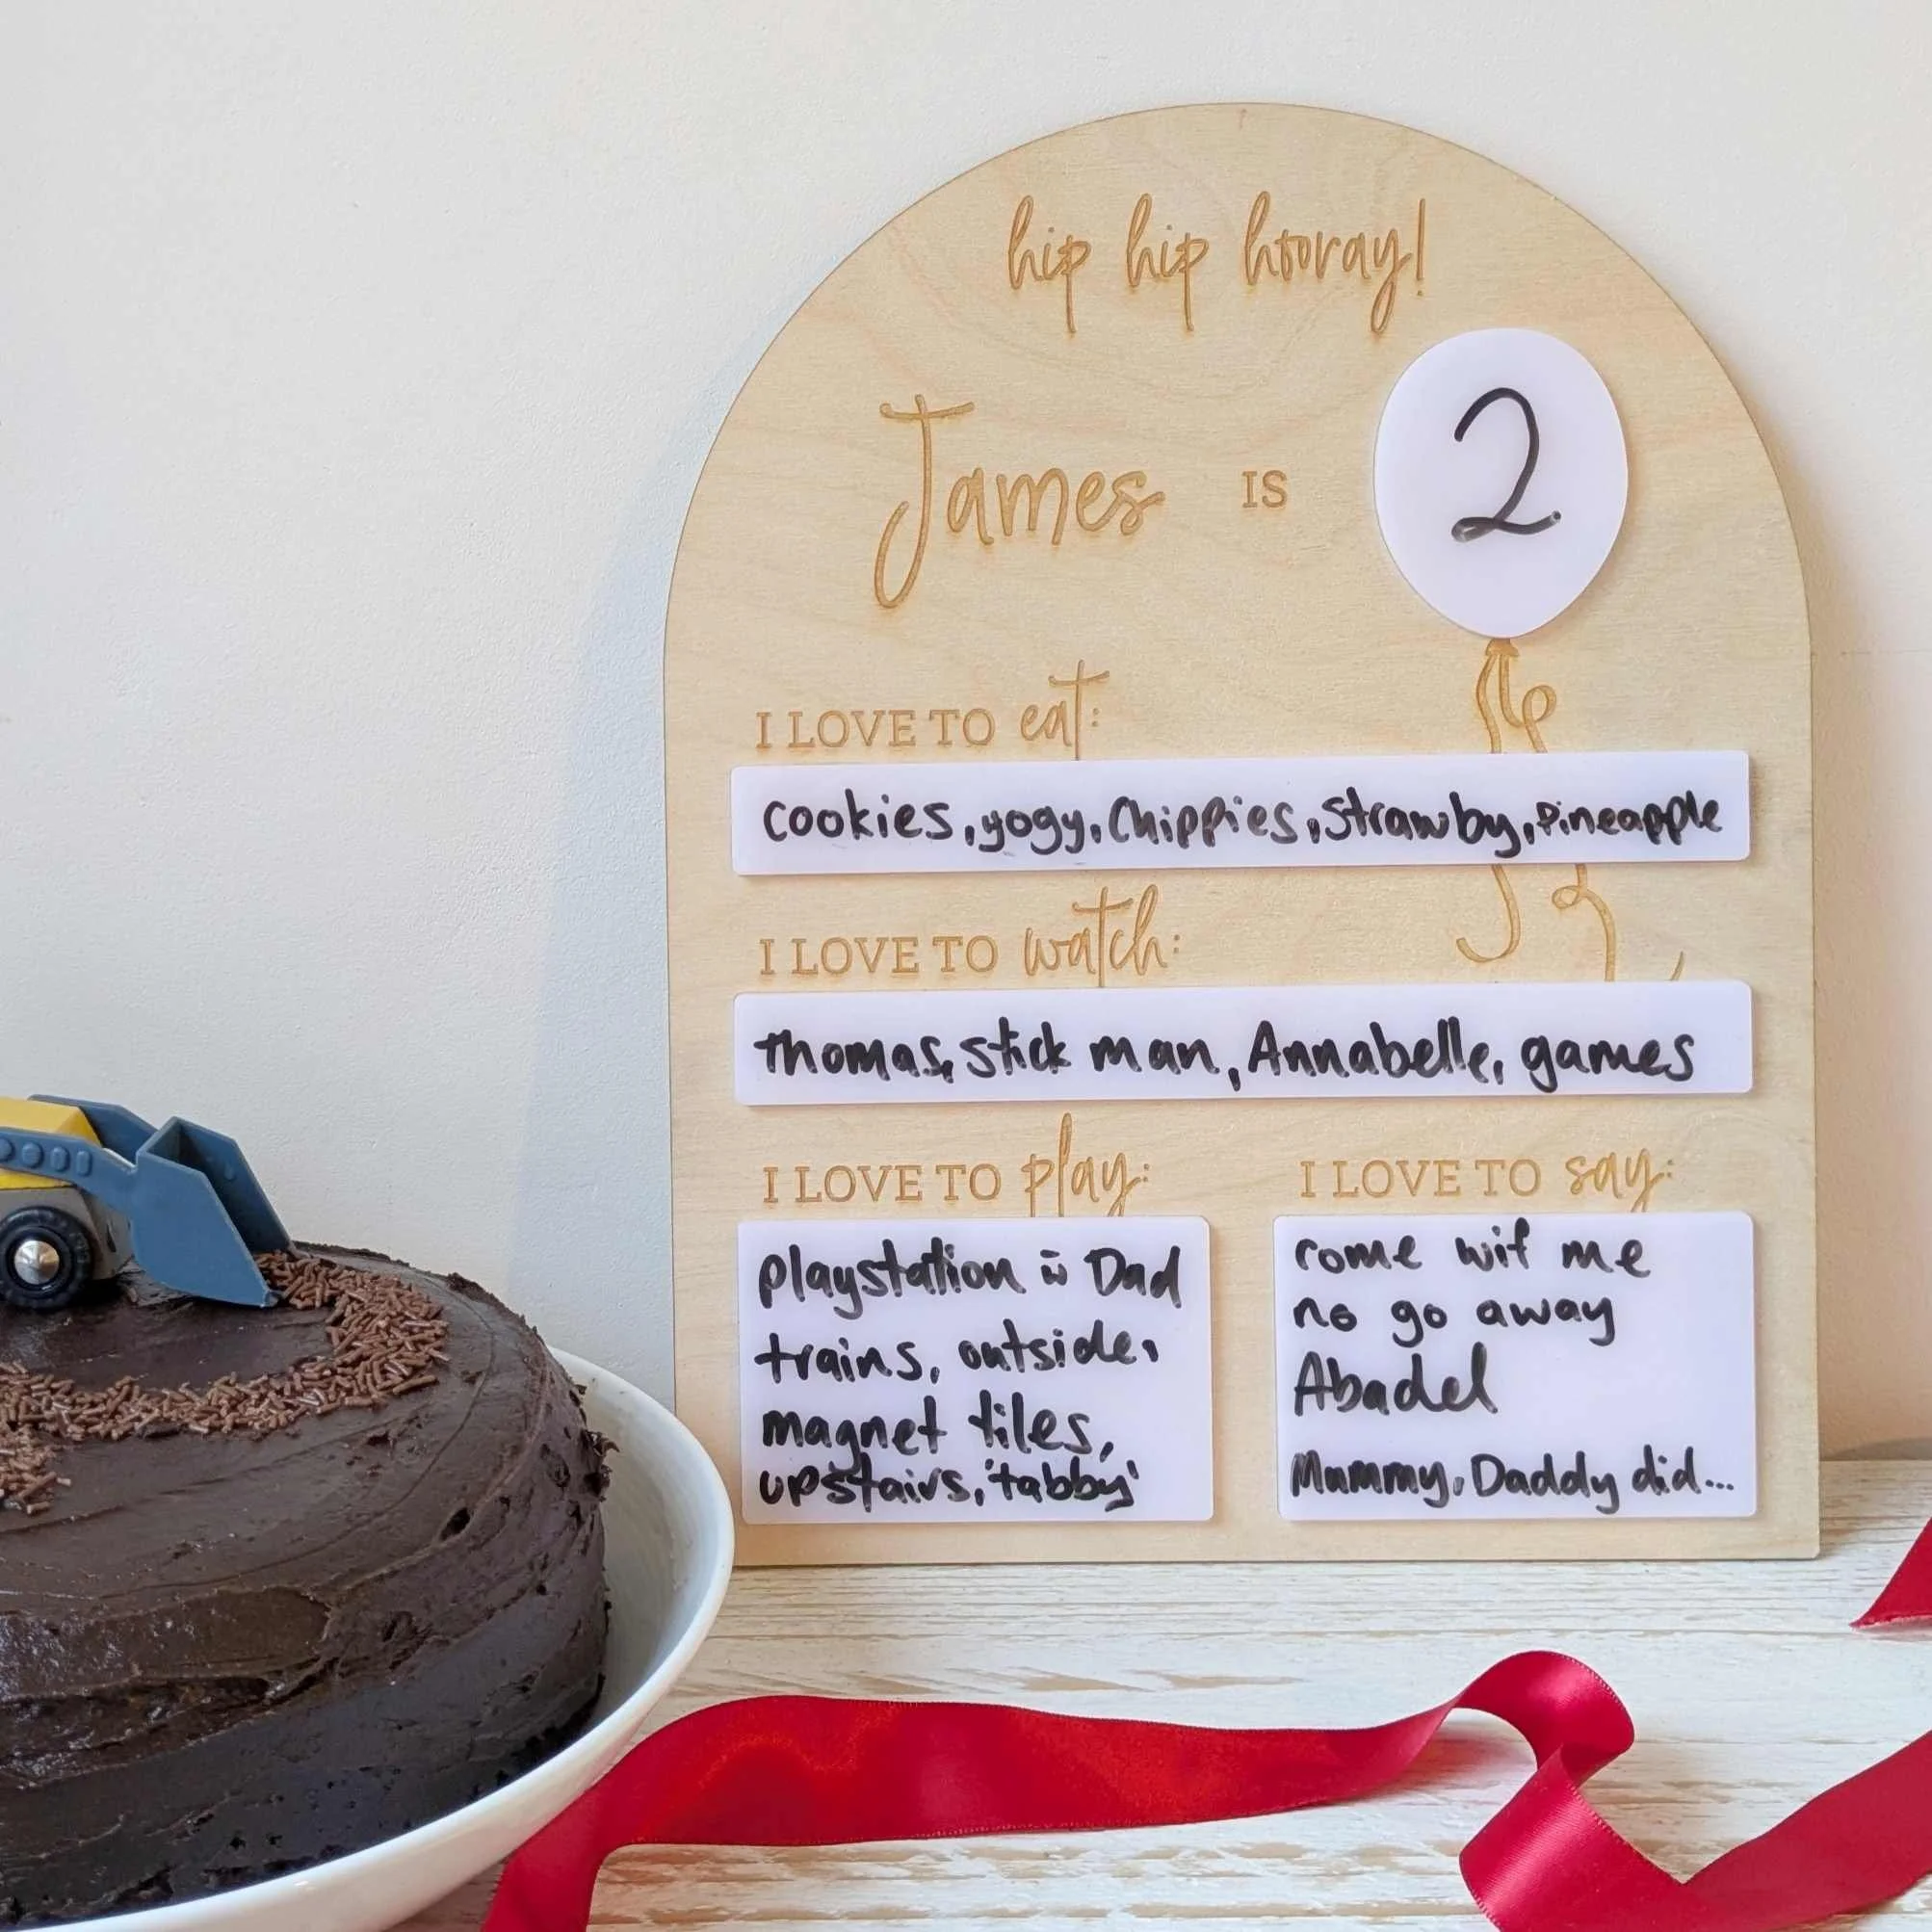 hip hip hooray!
James IS 2
I LOVE TO eat:
cookies, yogy, Chippies, Strawby, Pineapple
I LOVE TO watch:
Thomas, stick man, Annabelle, games
I LOVE TO play:
playstation w Dad
trains, outside,
magnet tiles,
upstairs, 'tabby'
I LOVE TO say:
come wif me
no go away
Abadel
Mummy, Daddy did...